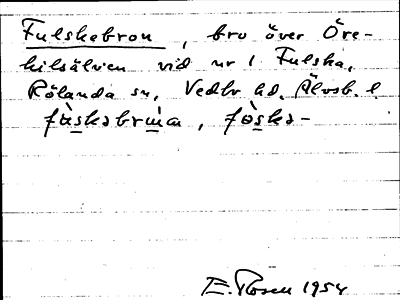 Fulskebron, bro över Öre-
kilsälven vid nr 1 Fulska,
Rölanda sn, Vedbo hd. Älvsb. l.
fùskəbrωn, fòskə-
E. Rosen 1954